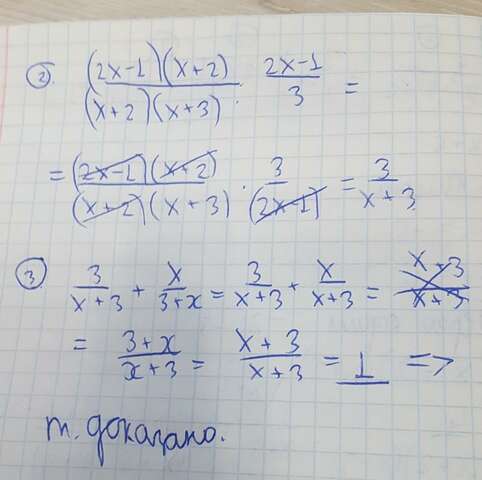 2) (2x-1)(x+2)/(x+2)(x+3) : 2x-1/3 =
= (2x-1)(x+2)/(x+2)(x+3) · 3/(2x-1) = 3/x+3
3) 3/x+3 + x/3+x = 3/x+3 + x/x+3 = x+3/x+3
= 3+x/x+3 = x+3/x+3 = 1 =>
т. доказано.